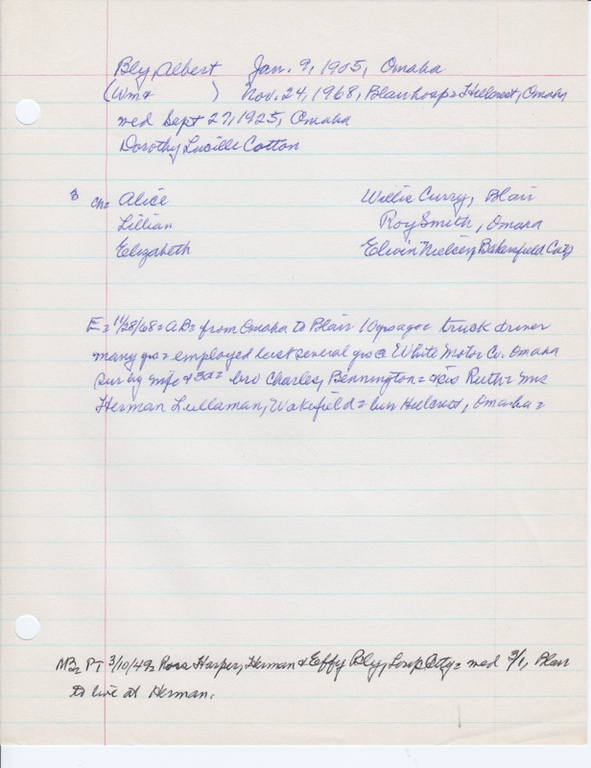 Bly, Albert Jan. 9, 1905, Omaha
(Wm & ) Nov. 24, 1968, Blair hosp = Hillcrest, Omaha
wed Sept 27, 1925, Omaha
Dorothy Lucille Cotton
3 ch = Alice Willie Curry, Blair
Lillian Roy Smith, Omaha
Elizabeth Elwin Nielsen, Bakersfield
E = 11/28/68 = AB = from Omaha to Blair 10 yrs ago = truck driver
many yrs = employed last several yrs @ White Motor Co. Omaha
sur by wife & 3d = bro Charles, Bennington = & sis Ruth = Mrs
Herman Lullaman, Wakefield = bur Hillcrest, Omaha =
MB = PT 3/10/49 = Harper, Herman & Effy Bly, Loup City = wed 3/1, Blair
to live at Herman.